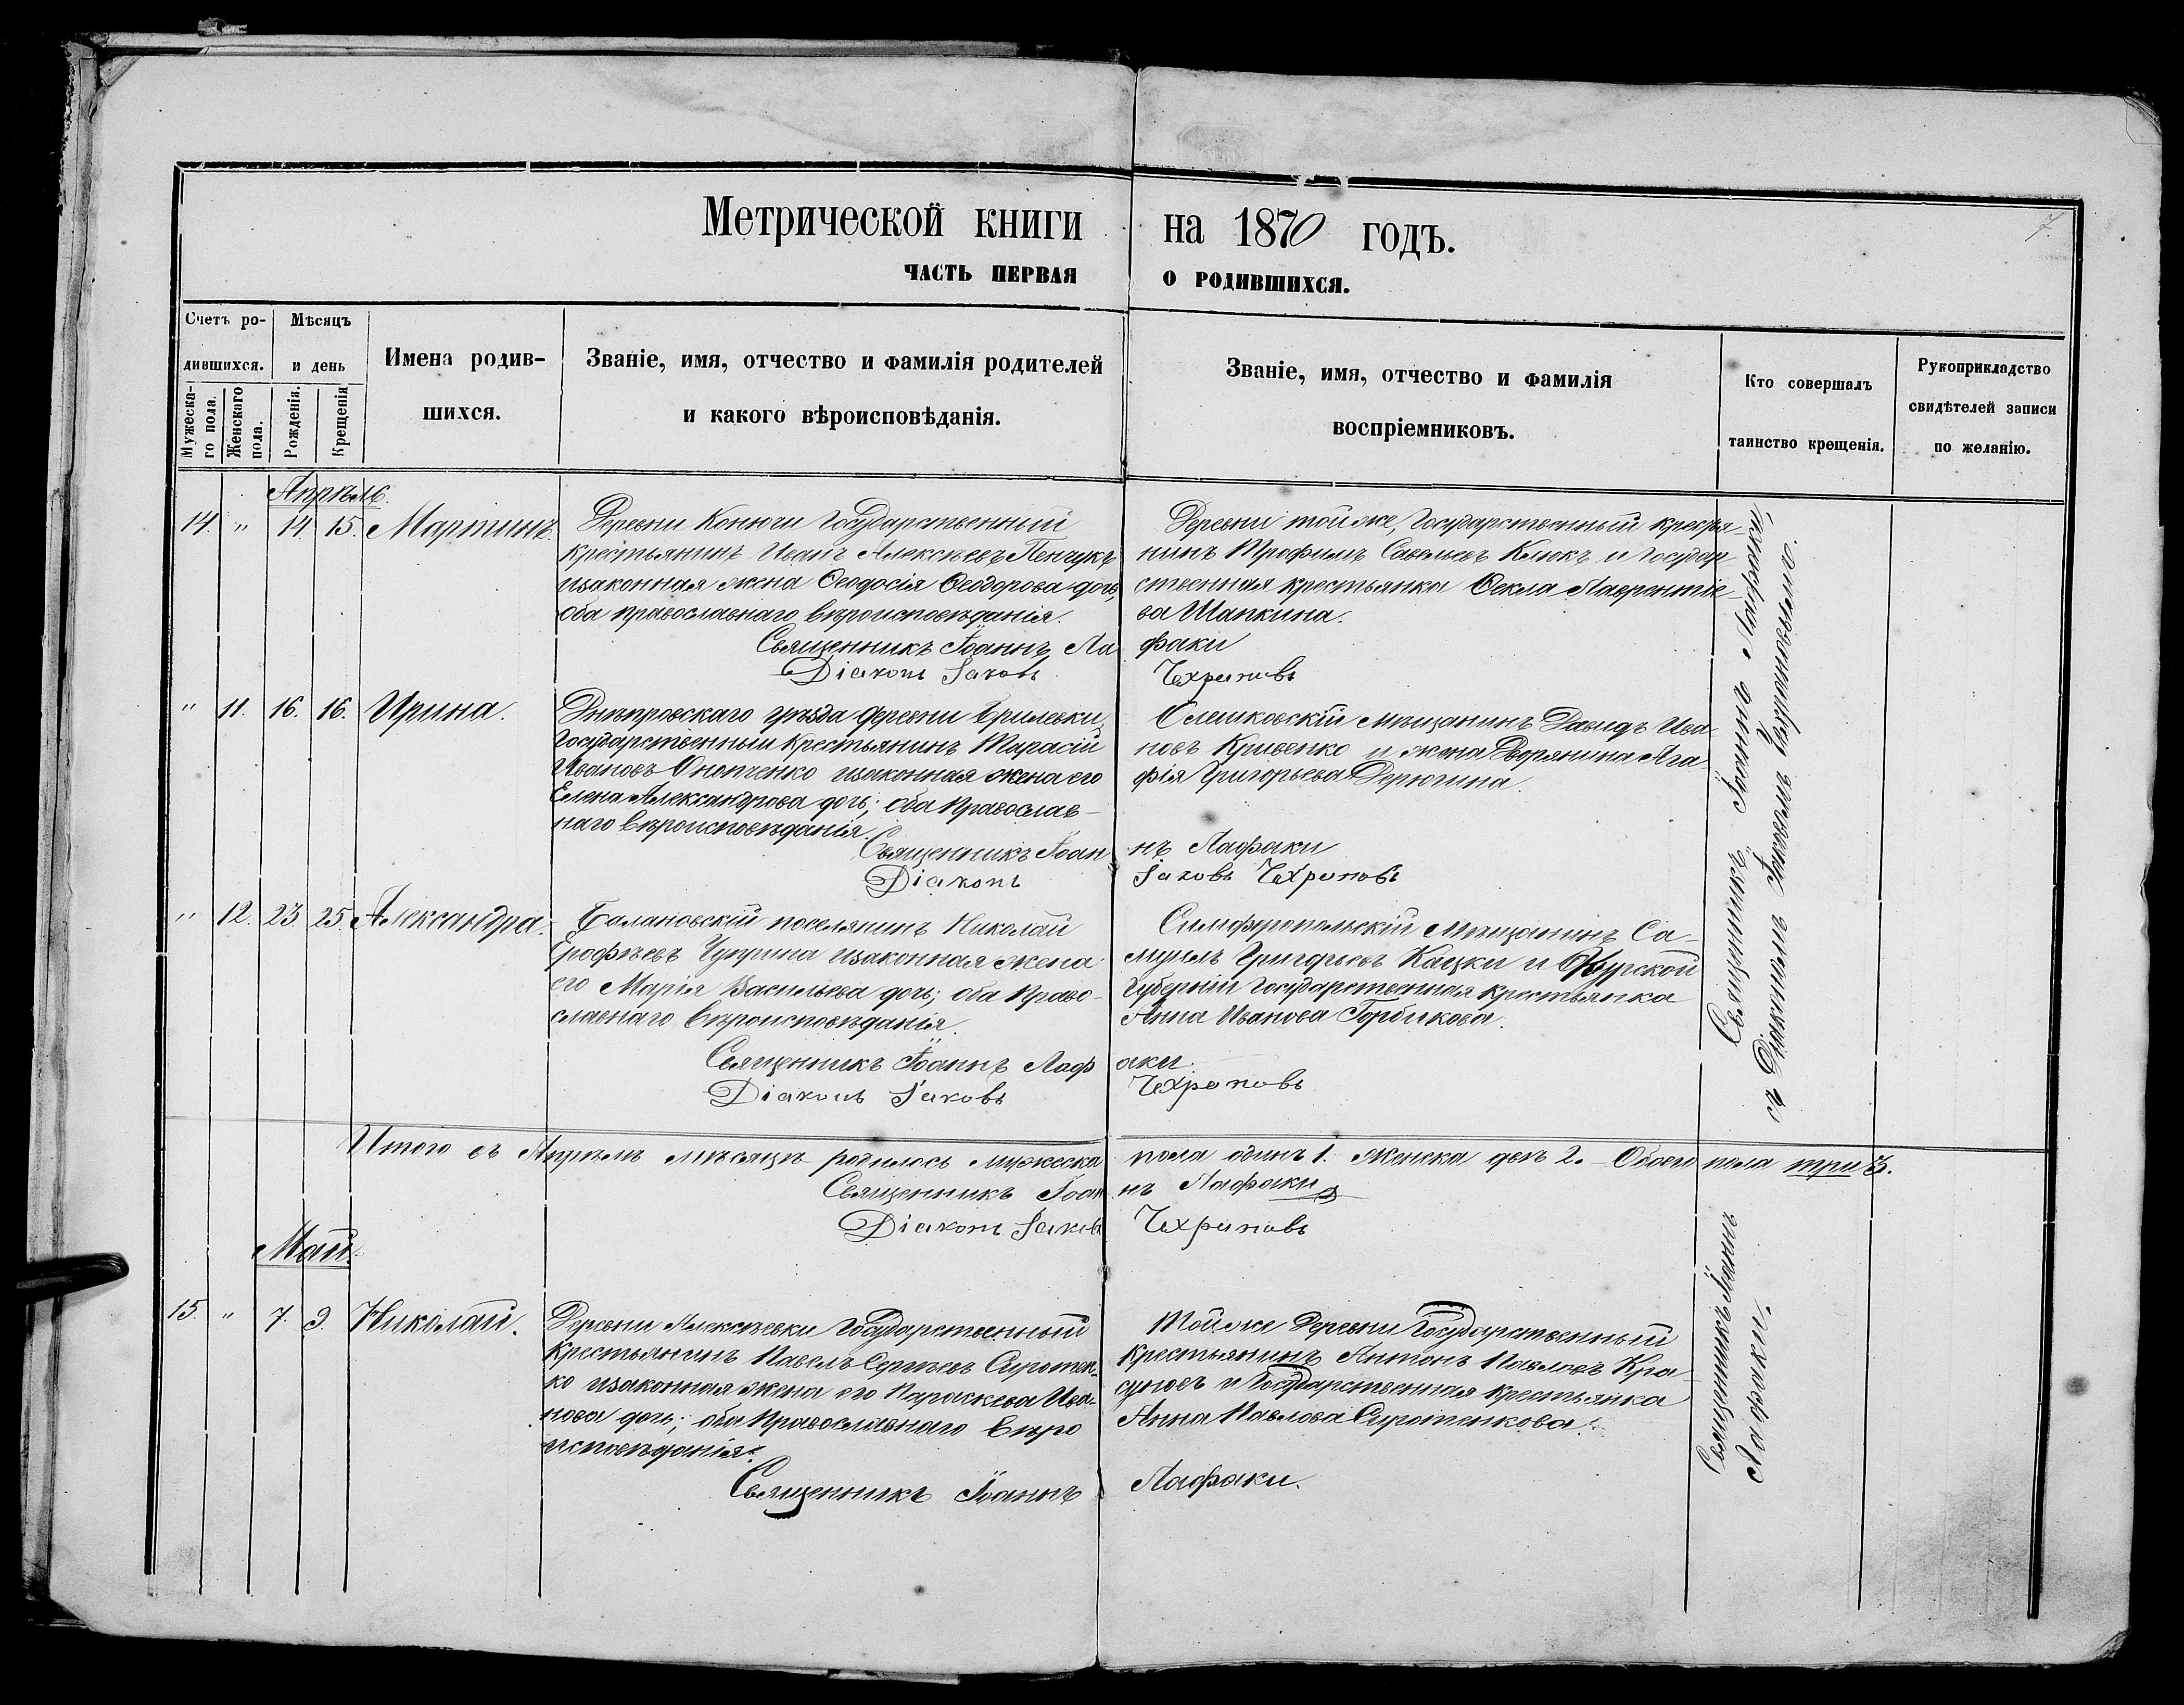 7.
Метрической книги на 1870 годъ.
ЧАСТЬ ПЕРВАЯ О РОДИВШИХСЯ.
Счетъ родившихся.
Мужескаго пола.
Женскаго пола.
Мѣсяцъ и день
Рожденія.
Крещенія
Имена родившихся.
Званіе, имя, отчество и фамилія родителей
и какого вѣроисповѣданія.
Званіе, имя, отчество и фамилія
воспріемниковъ.
Кто совершалъ
таинство крещенія.
Рукоприкладство
свидѣтелей записи
по желанію.
Апрѣль
14. " 14 15. Мартинъ.
Деревни Конюги Государственный
крестьянинъ Иванъ Алексѣевъ Пенчукъ
изаконная жена Феодосія Феодорова дочь,
оба православнаго вѣроисповѣданія.
Деревни тойже, Государственный крестья-
нинъ Трофимъ Савельевъ Клюкъ и Государ-
ственная крестьянка Фекла Лаврентіе-
ва Шапкина.
Священникъ Іоаннъ Лафаки
Діаконъ Іаковъ Чехрановъ
" 11. 16. 16. Ирина.
Днѣпровскаго уѣзда деревни Брилевки,
Государственный Крестьянинъ Тарасій
Ивановъ Онопченко изаконная жена его
Елена Александрова дочь; оба Православ-
наго вѣроисповѣданія.
Олешковскій мѣщанинъ Давидъ Ива-
новъ Кривенко и жена Дворянина Ага-
фія Григорьева Дерюгина.
Священникъ Іоаннъ Лафаки
Діаконъ Іаковъ Чехрановъ
" 12. 23. 25. Александра.
Балановскій поселянинъ Николай
Ерофѣевъ Чуприна изаконная жена
его Марія Васильева дочь; оба Право-
славнаго вѣроисповѣданія.
Симферопольскій Мѣщанинъ Са-
муилъ Григорьевъ Кацки и Курской
Губерніи Государственная крестьянка
Анна Иванова Горбикова.
Священникъ Іоаннъ Лафаки.
Діаконъ Іаковъ Чехрановъ
Священникъ Іоаннъ Лафаки,
съ Діакономъ Іаковомъ Чехрановымъ.
Итого въ Апрѣлѣ мѣсяцѣ родилось мужеска пола одинъ 1. женска двѣ 2. Обоего пола три 3.
Священникъ Іоаннъ Лафаки
Діаконъ Іаковъ Чехрановъ
Май.
15. " 7. 9. Николай.
Деревни Алексѣевки Государственный
Крестьянинъ Павелъ Сергѣевъ Сиротен-
ко изаконная жена его Параскева Ива-
нова дочь; оба Православнаго вѣро
исповѣданія.
Тойже Деревни Государственный
Крестьянинъ Антонъ Павловъ Кра-
суновъ и Государственная крестьянка
Анна Павлова Сиротенкова.
Священникъ Іоаннъ Лафаки.
Священникъ Іоаннъ
Лафаки.